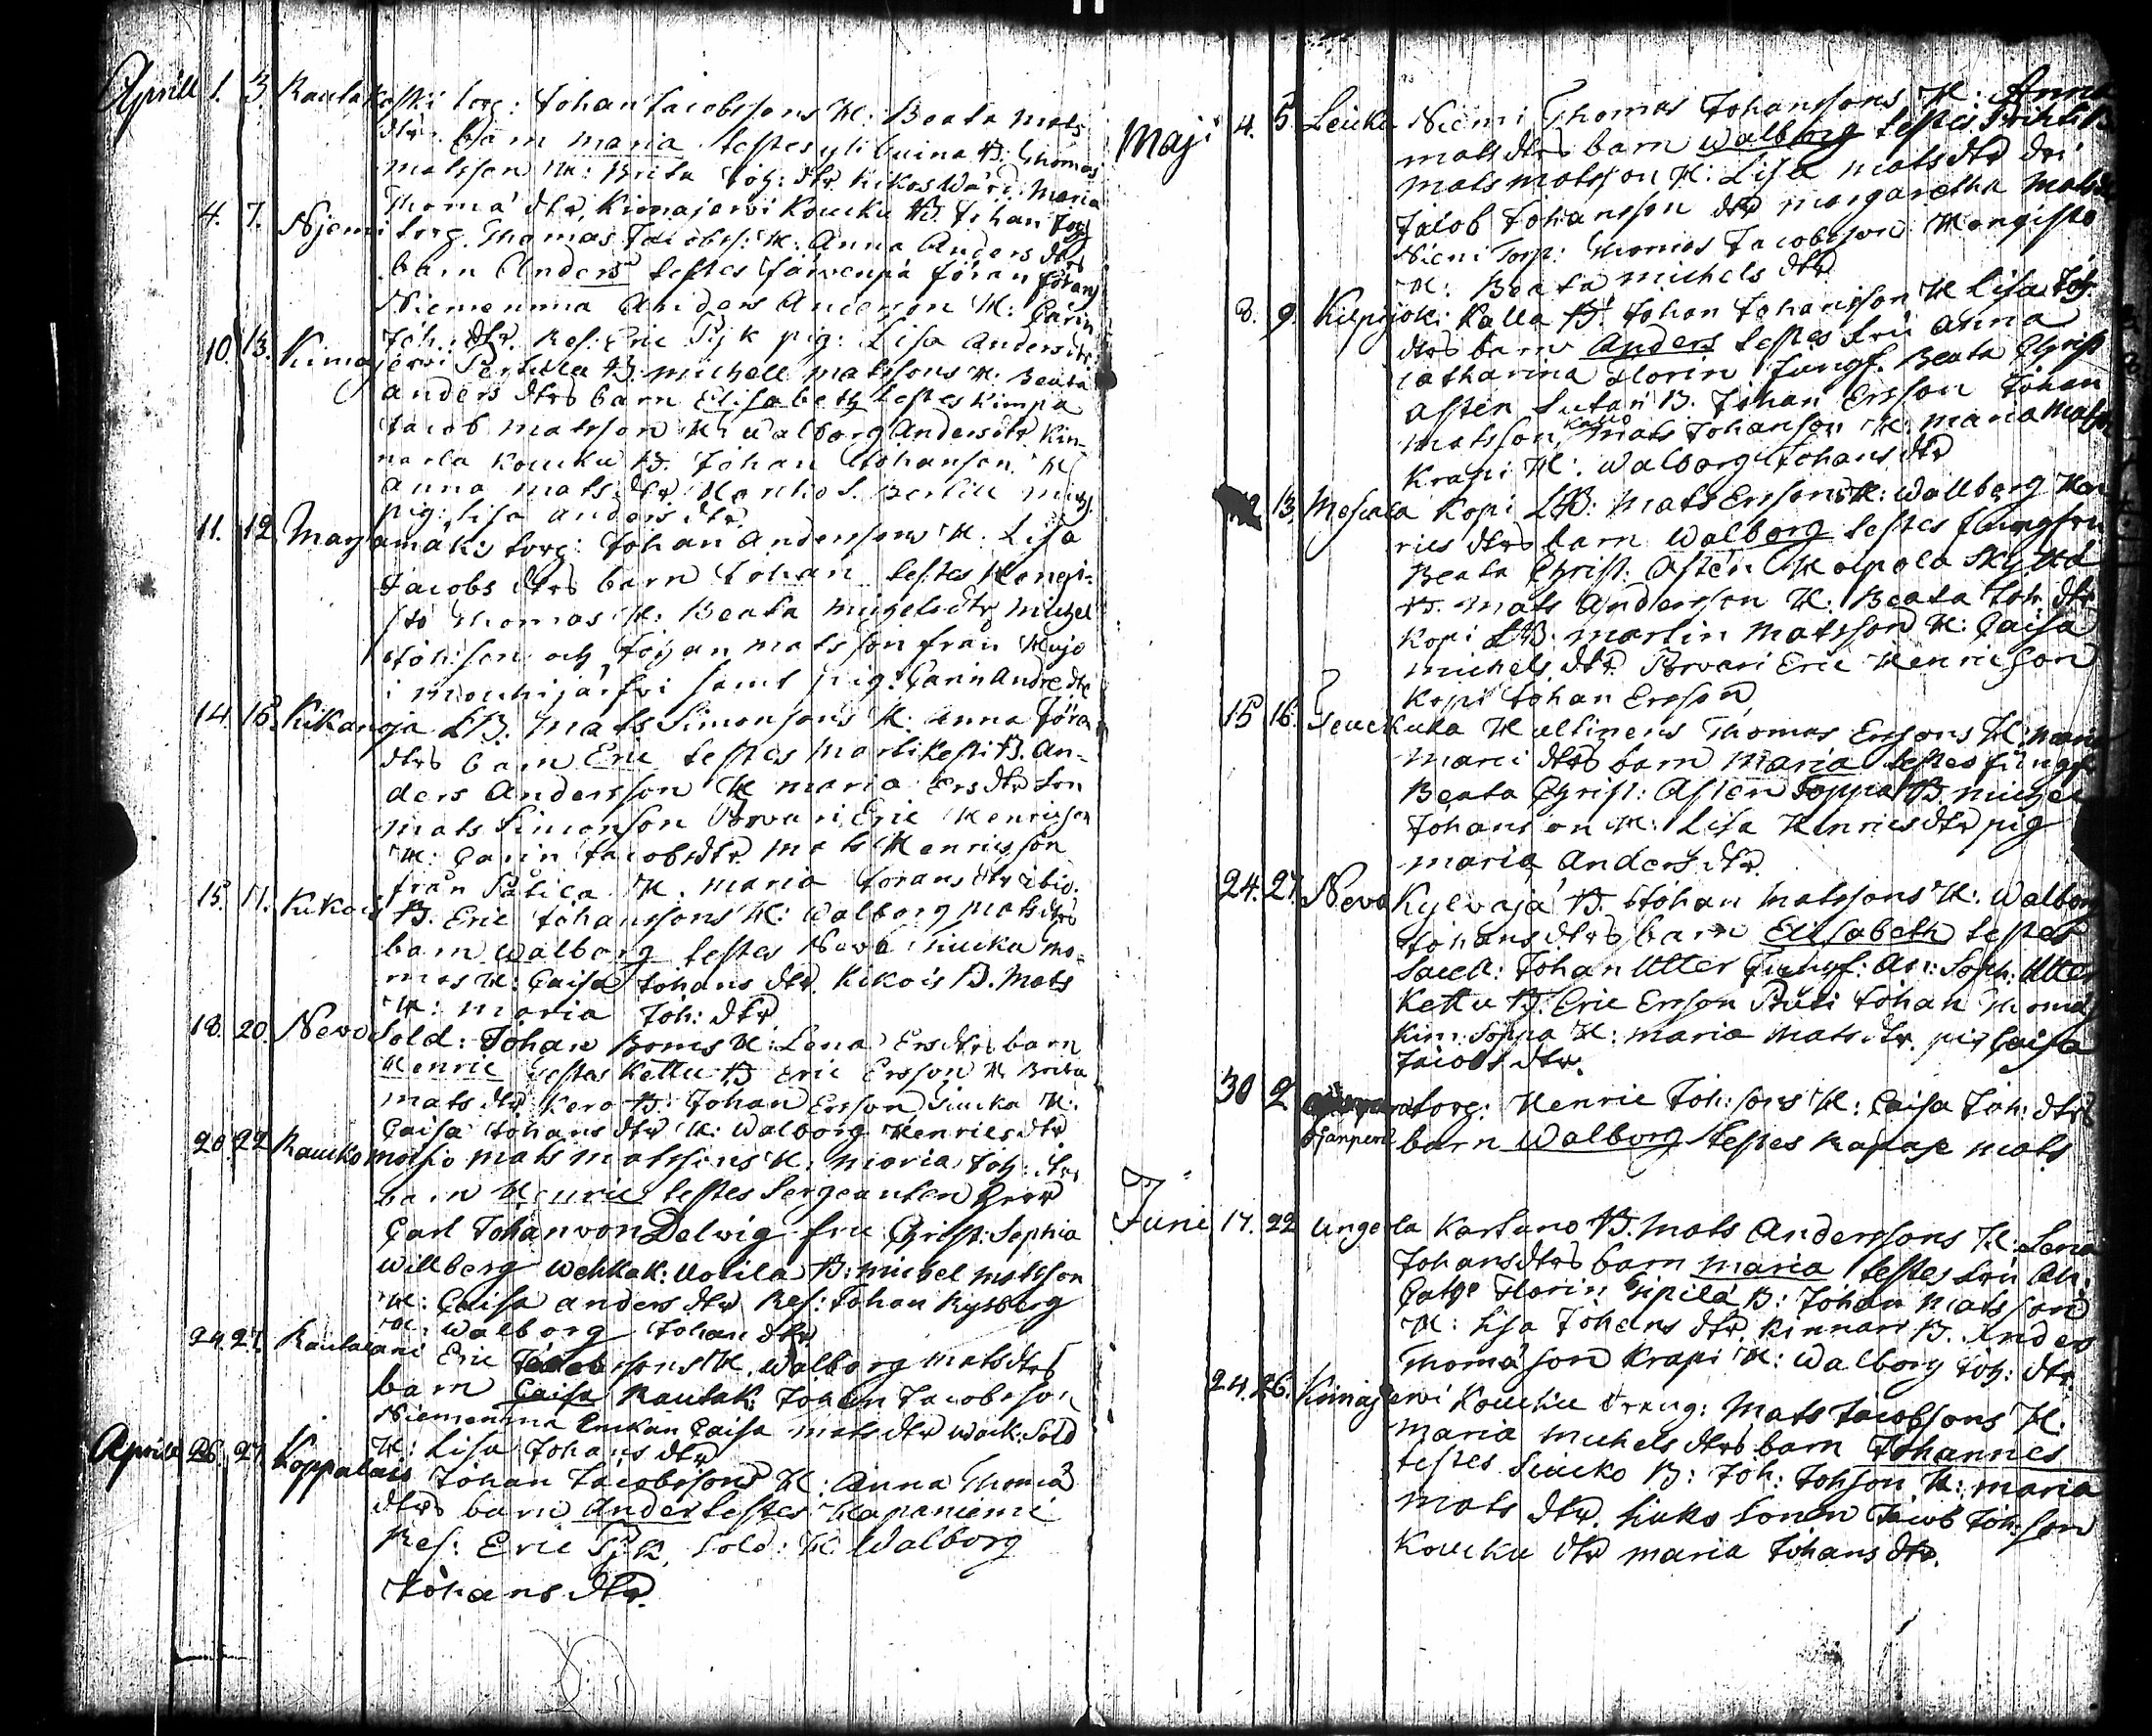 Aprill 1. 3 Rautakoski torp: Johan Jacobssons H: Beata Mats
dtrs barn maria testes yli Cuina B. Thomas
Matsson H: Brita Joh: dtr. Kikos Wärd: Maria
Thomæ dtr, Kimajerwi Koucku B. Johan
4. 7. Njemi torp. Thomas Jacobss: H: Anna Anders dtrs
barn Anders testes Järvenpä Jöran Jörans
Niemenma Anders Anderson H: Carin
Joh: dtr. Res: Eric Pijk pig: Lisa Anders dtr.
10. 13. Kimajerwi Perttula B. Michell Matssons H. Beata
anders dtrs barn Elisabeth testes Kimpa
Jacob Matsson H: Walborg Anders dtr. Kin-
narla Koucku B. Johan Johanson H:
Anna Mats dtr Bertill
pig: Lisa anders dtr.
11. 12. torp: Johan Anderssons H. Lisa
Jacobs dtrs barn Johan testes Hengi-
stö Thomas H: Beata Michels dtr Michel
Joh:son och Johan Matsson från
i samt pig: Carin Andr: dtr
14. 16. Kikanoja LB. Mats Simonsons H: Anna Jöra
dtrs barn Eric testes B. An-
ders Andersson H maria Ers dtr Son
Mats Simonson Porvari Eric Henricson
H: Carin Jacobs dtr. Mats Henricsson
från H. Maria Jörans dtr ibid.
15. 17. Kikois B. Eric Johanssons H: Walborg Mats dtrs
barn Walborg testes Nevo Siucku Tho-
mas H: Caisa Johans dtr. Kikois B. Mats
H: Maria Joh: dtr
18. 20. Nevo Sold: Johan Boms H: Lena Ers dtrs barn
Henric testes Kettu B Eric Ersson H Brita
Mats dtr Kero B. Johan Ersson Siucku H.
Caisa Johans dtr H: Walborg Henrics dtr
20. 22 Rauckomoisio Mats Matssons H. Maria Joh: dtrs
barn Henric testes Sergeanten Herr
Carl Johan von Delvig fru Christ: Sophia
Willberg Wehkak: Uotila B: Michel Matsson
H: Caisa anders dtr Res: Johan Rysberg
H: Walborg Johan dtr
24. 27. Rautalani Eric Jacobssons H. Walborg Mats dtrs
barn Caisa Rautak: Johan Jacobsson
Niemenma Enckan Caisa Mats dtr Wack: Sold
H: Lisa Johans dtr
Aprill 26. 27. Koppalais Johan Jacobssons H: Anna Thomæ
dtrs barn Anders testes Hapaniemi
Res: Eric Pijk, Sold: H: Walborg
Johans dtr.
Maji 4. 5. Leucku Niemi Thomas Johanssons H: Anna
Matsdtrs barn Walborg testes
Mats Matsson H: Lisa Mats dtr
Jacob Johansson dtr Margaretha Mats
Niemi Torp: Thomas Jacobsson Hengistö
H: Beata Michels dtr
8. 9. Kilpijoki Kalla B. Johan Johansson H Lisa Joh:
dtrs barn Anders testes fru Anna
Catharina Florin Jungf. Beata Christ
Asten Sutari B. Johan Ersson Johan
Matsson, Mats Johanson H: Maria Mats
Krapi H: Walborg Johans dtr
12 13. Moisala Kopi LB: Mats Erssons H: Wallborg Hen
rics dtrs barn Walborg testes Jungfru
Beata Christ: Asten Holpola
B. Mats Andersson H: Beata Joh: dtr
Kopi LB: Martin Matsson H: Caisa
Michels dtr. Porvari Eric Henricson
Kopi Johan Ersson
15 16. Hultinens Thomas Erssons H: Maria
dtrs barn Maria testes Jungf
Beata Christ: Asten Soppa B. Michel
Johansson H: Lisa Henrics dtr pig
Maria Anders dtr.
24. 27. Nevo Kylväjä B. Johan Matssons H: Walborg
Johans dtrs barn Elisabeth testes
Johan Utter Jungf: An: Soph: Utter
Kettu B. Eric Ersson Johan Thomas
Kim: Soppa H: Maria Mats dtr. pig Caisa
Jacobs dtr.
30 2 torp: Henric Joh:sons H: Caisa Joh: dtrs
barn Walborg testes Rapase Mats
Juni 17. 22 Ungerla Kartano B. Mats Anderssons H: Lena
Johansdtrs barn Maria testes fru An:
Catr: Florin Sipilä B: Johan Matsson
H: Lisa Johans dtr. Kinnari B. Anders
Thomæson Krapi H: Walborg Joh: dtr.
24. 26. Kimajerwi Koucku dreng: Mats Jacobsons H:
Maria Michels dtrs barn Johannes
testes Siucko B: Joh: Johson H: Maria
Mats dtr. Siuko Sonen Jacob Joh:son
Koucku dtr Maria Johans dtr.